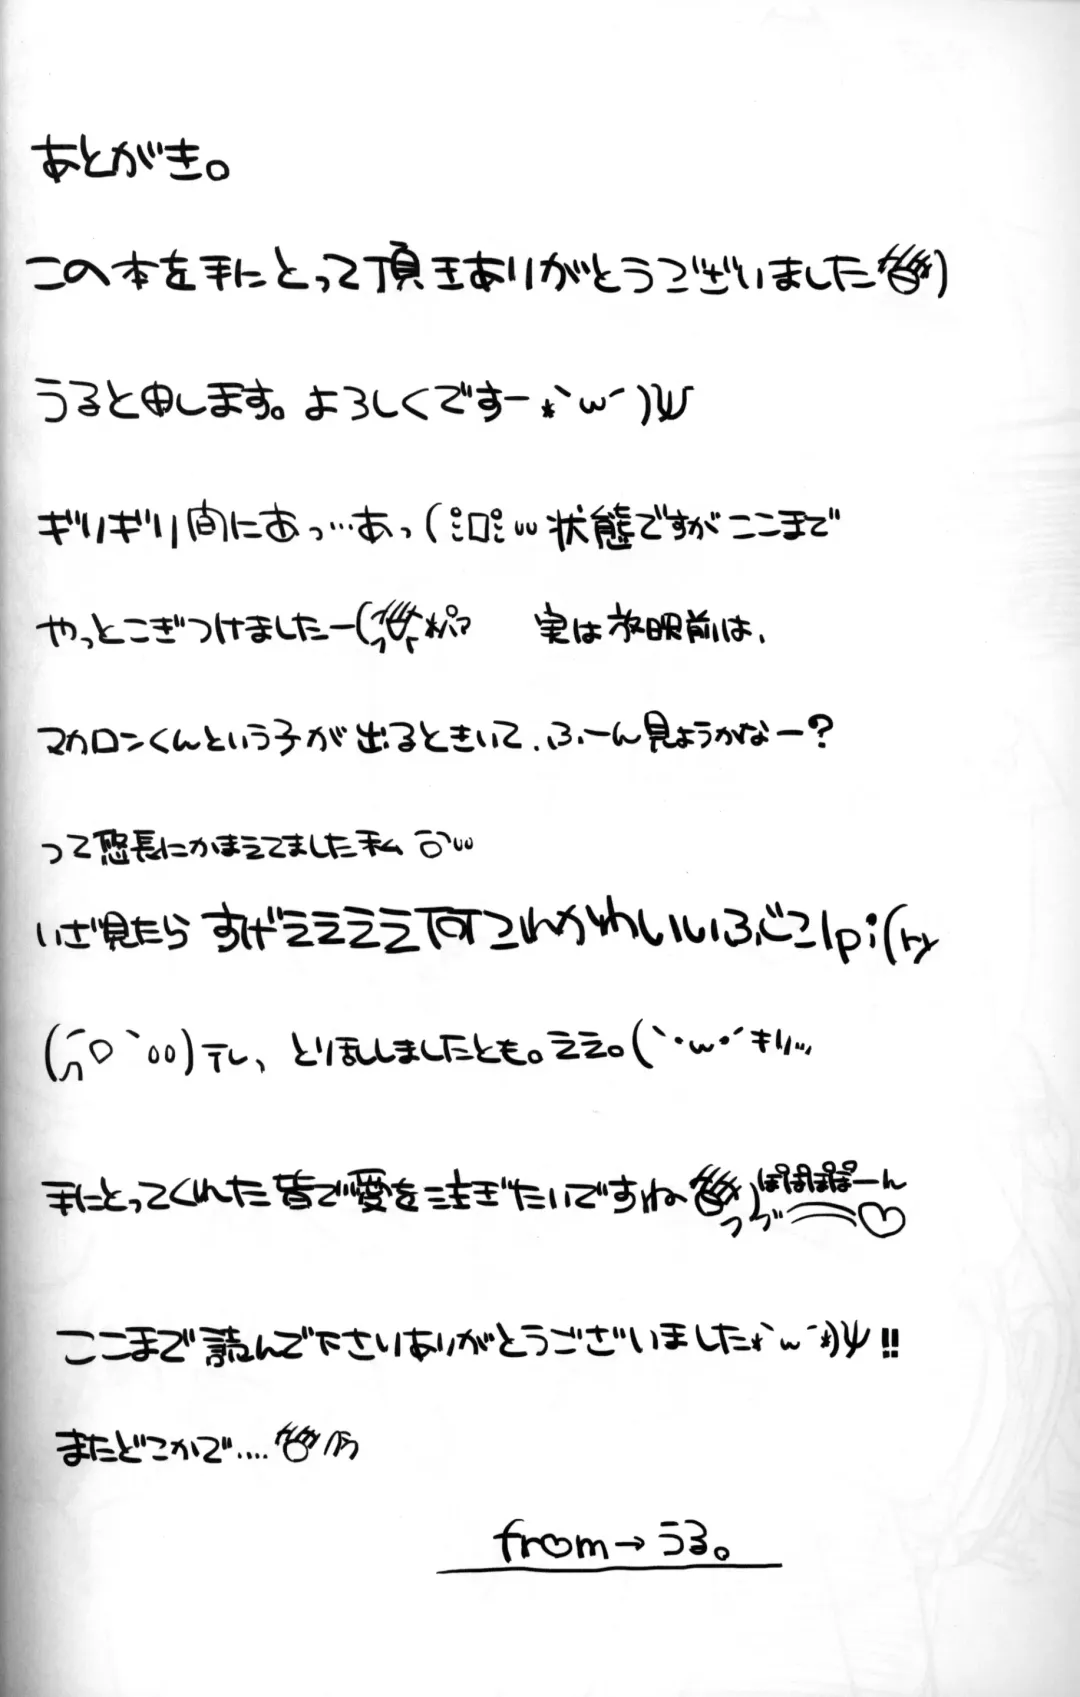 あとがき。
この本を手にとって頂きありがとうございました
うると申します。よろしくですー*`ω´)ψ
ギリギリ間にあっ…あっ(ﾟﾛﾟ;;状態ですがここまで
やっとこぎつけましたー( 実は放映前は、
マカロンくんという子が出るときいて、ふーん見ようかなー?
って悠長にかまえてました私
いざ見たらすげぇえええ何これかわいいいふじこlp;(ry
テレ、とり乱しましたとも。ええ。(`・ω・´キリッ
手にとってくれた皆で愛を注ぎたいですね ぽぽぽぽーん
ここまで読んで下さりありがとうございました*`ω´*)ψ!!
またどこかで....
from→うる。